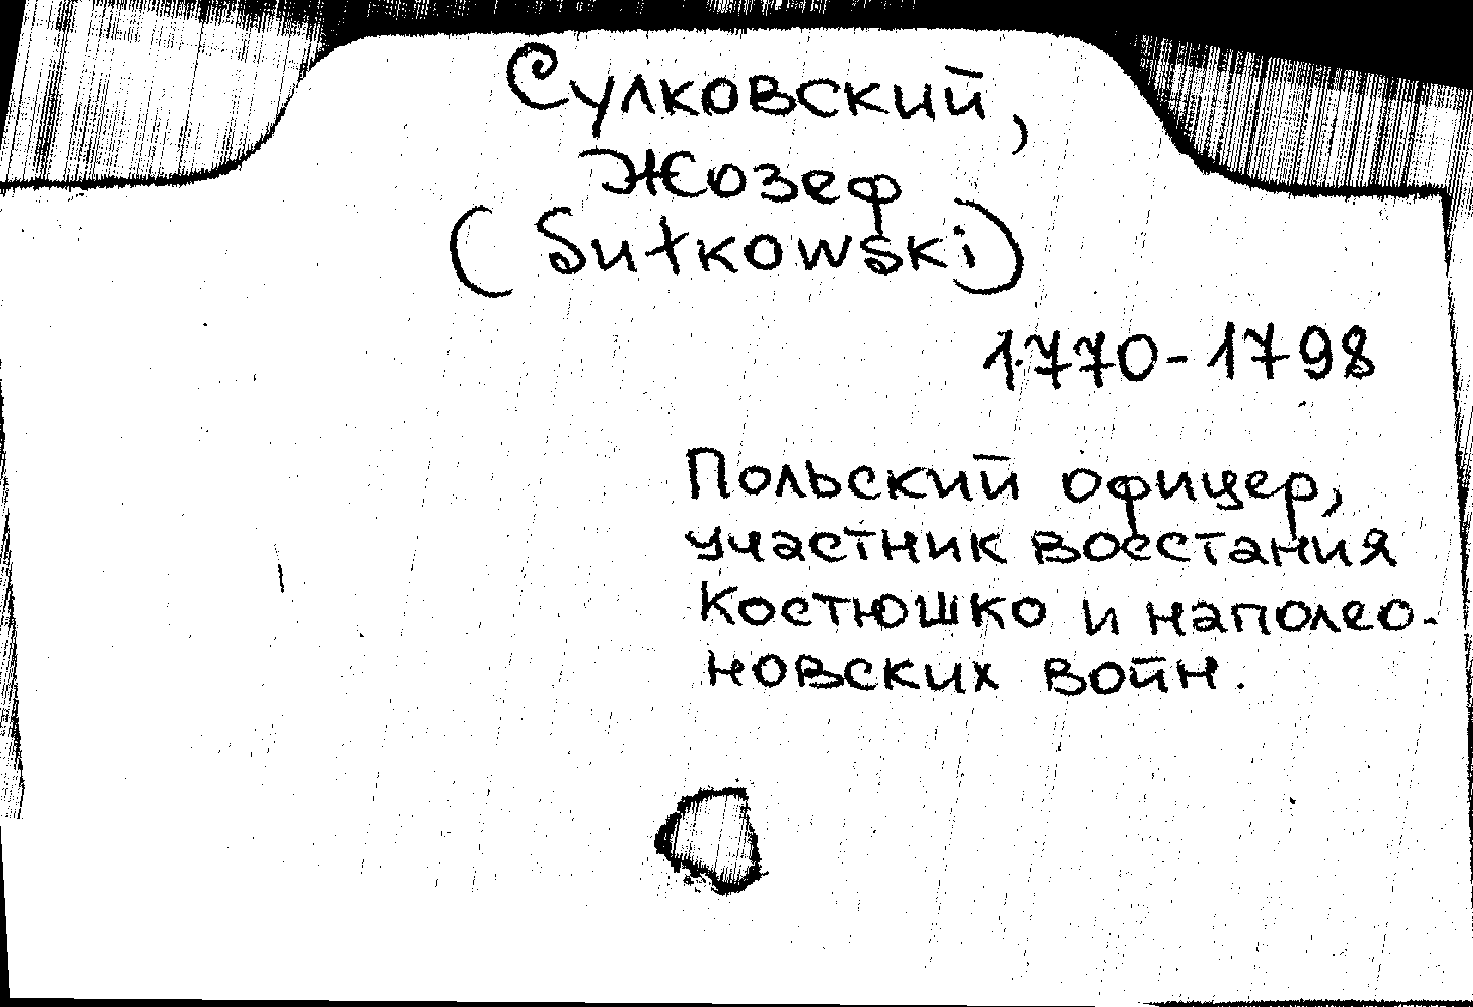 Сулковский,
Жозеф
(Sułkowski)
1770-1798
Польский офицер,
участник восстания
Костюшко и наполео-
новских войн.